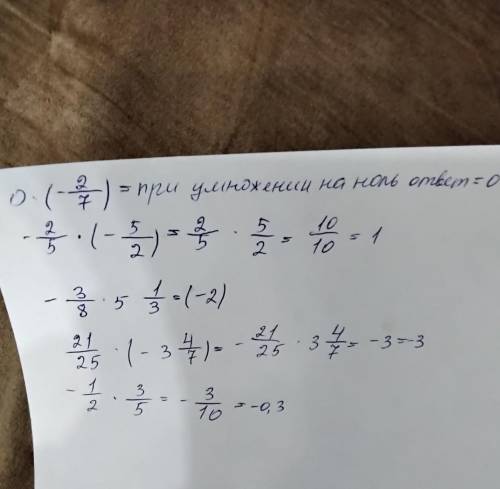 0 · (- 2/7) = при умножении на ноль ответ = 0
- 2/5 · (- 5/2) = 2/5 · 5/2 = 10/10 = 1
- 3/8 · 5 1/3 = (-2)
21/25 · (- 3 4/7) = - 21/25 · 3 4/7 = -3 = -3
- 1/2 · 3/5 = - 3/10 = -0,3